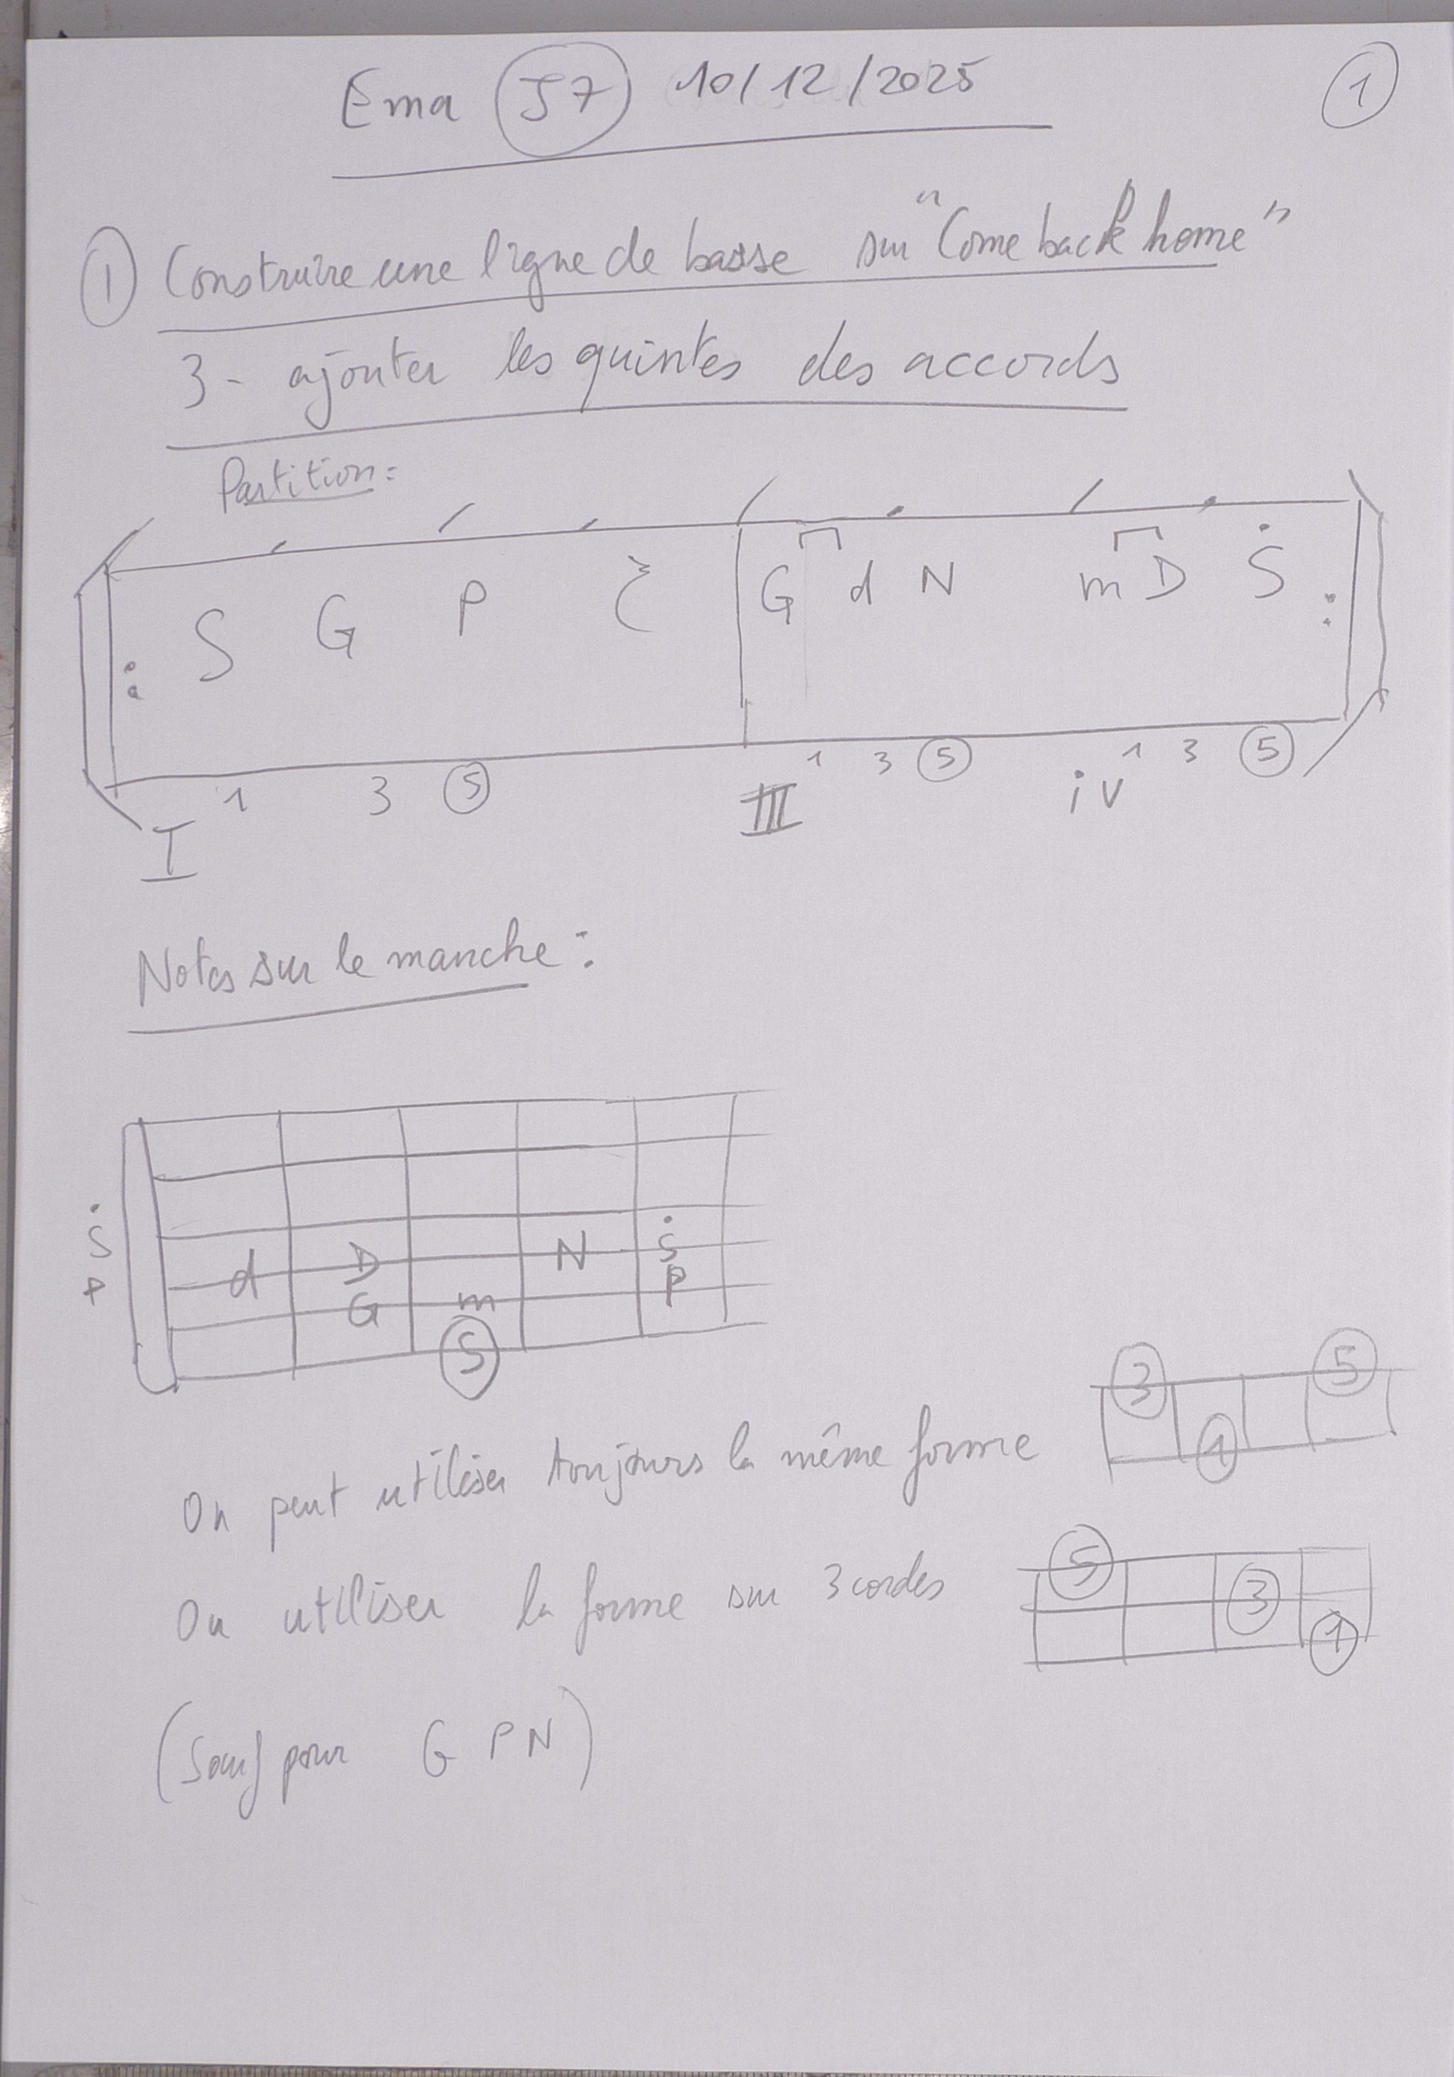 Ema 57 10/12/2025
1
1 Construire une ligne de basse sur "Come back home"
3- ajouter les quintes des accords
Partition:
: S G P G d N m D Ṡ :
1 3 5 1 3 5 1 3 5
I III iv
Notes sur le manche:
d D N Ṡ
Ṡ
P
G m P
S
On peut utiliser toujours la même forme
3 5
1
Ou utiliser la forme sur 3 cordes
5
3
1
(Sauf pour G P N)